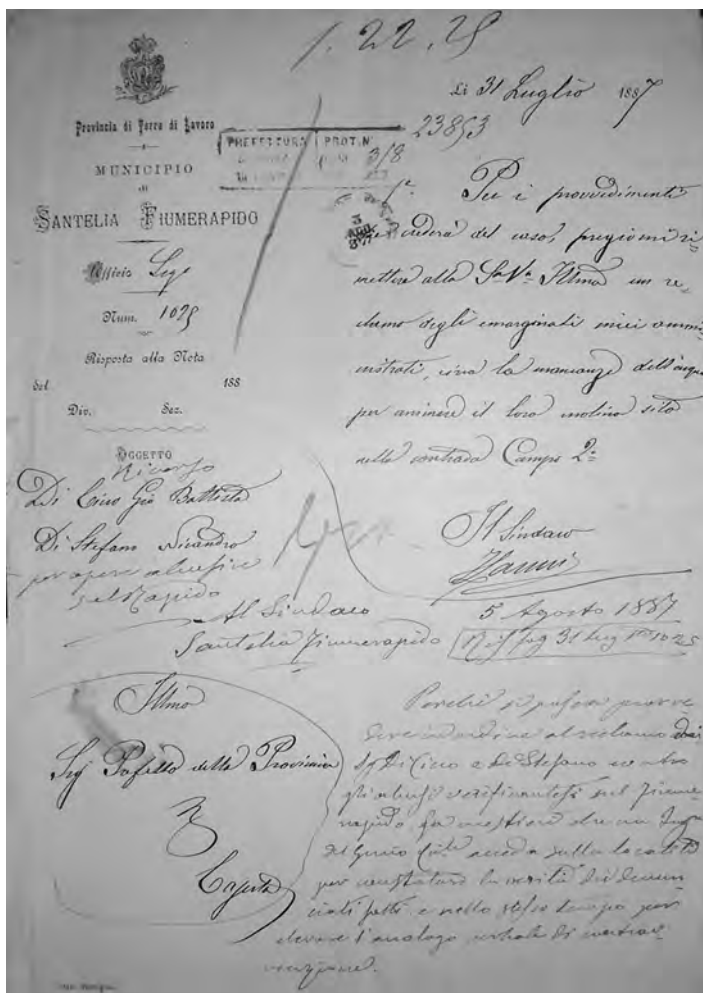 1.22.25
Provincia di Terra di Lavoro
MUNICIPIO
di
SANTELIA FIUMERAPIDO
Officio Leg
Num. 1025
Risposta alla Nota
del 188
Div. Sez.
OGGETTO
Ricorso
Di Cicco Gio Battista
Di Stefano Nicandro
per opere abusive
sul Rapido
Li 31 Luglio 1887
23853
PREFETTURA PROT. N.
3/8
Per i provvedimenti
che crederà del caso, pregiomi ri-
mettere alla S. V. Illma un re-
clamo degli emarginati miei ammi-
nistrati, circa la mancanza dell'acqua
per animare il loro molino sito
nella contrada Campo 2º
Il Sindaco
Lanni
Al Sindaco
Santelia Fiumerapido
5 Agosto 1887
Rif fog 31 Lug Nº 1025
Illmo
Sig Prefetto della Provincia
Caserta
Perché si possa provve
dere in ordine al reclamo dei
Sig Di Cicco e Di Stefano contro
gli abusi verificatisi sul Fiume
rapido fa mestieri che un Inge
del Genio Civle acceda sulla località
per constatare la verità dei denun
ciati fatti e nello stesso tempo per
elevare l'analogo verbale di contrav
venzione.